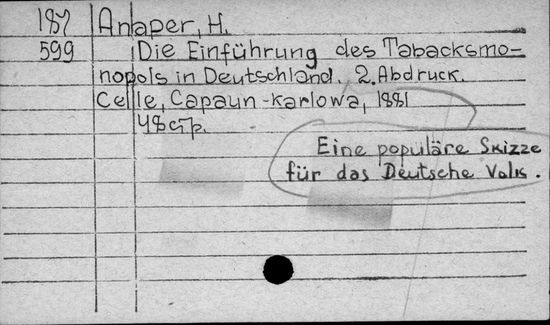 187 Anaper, H.
599 Die Einführung des Tabacksmo-
nopols in Deutschland. 2. Abdruck.
Celle, Capaun-Karlowa, 1881
48 стр.
Eine populäre Skizze
für das Deutsche Volk.